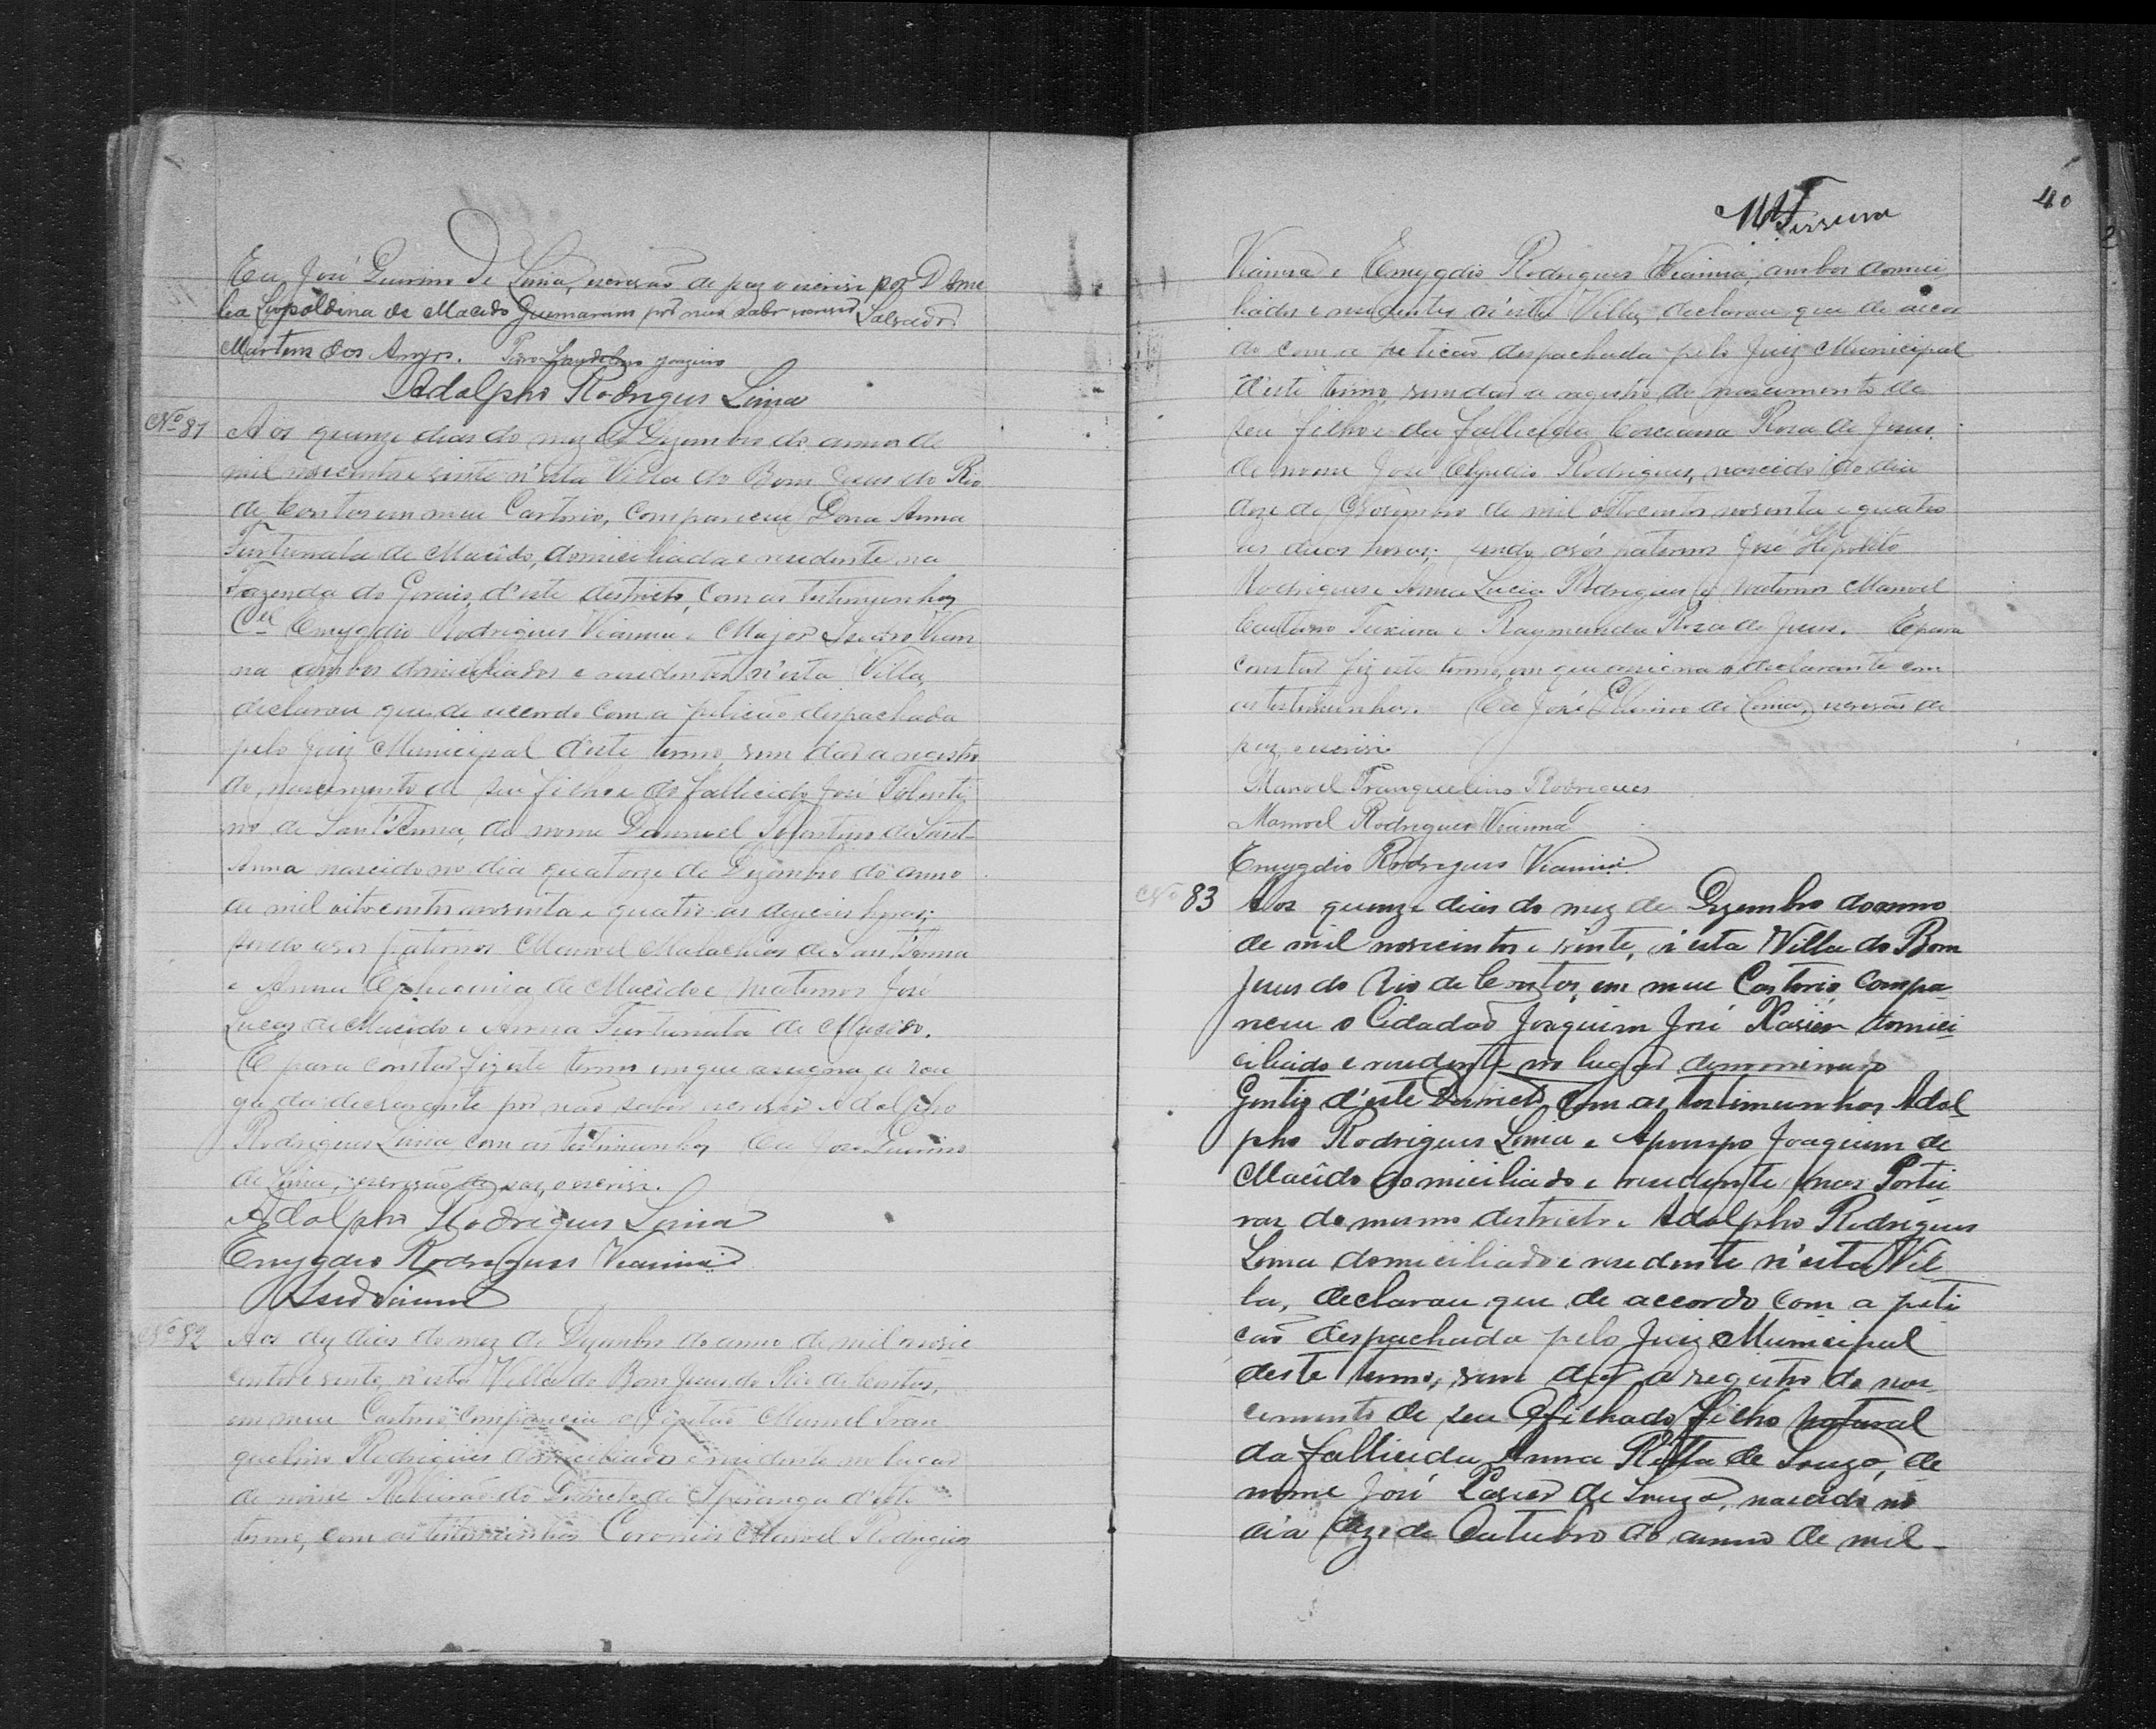 Eu José Guirino de Lima, escrivão de paz o escrivi por D Ame
lia Leopoldina de Macedo Guimaraens por não saber escrever Salvador
Martins dos Anjos.
Adolpho Rodrigues Lima
Nº 81 Aos quinze dias do mez de Dezembro do anno de
mil novecentos e vinte n'esta Villa do Bom Jesus do Rio
de Contas em meu Cartorio, compareceu Dona Anna
Furtunata de Macêdo, domiciliada e residente na
Fazenda do Gerais, d'este destricto, com as testimunhas
Cel Emygdio Rodrigues Vianna e Major Isauro Vian
na ambos domiciliados e residentes n'esta Villa,
declarou que de accordo com a petição despachada
pelo Juiz Municipal d'este termo, vem dar a registro
do nascimento de seu filho e do fallecido José Tolenti
no de Sant'Anna, de nome Dannuel Tolentino de Sant-
Anna nascido no dia quatorze de Dezembro do anno
de mil oitocentos noventa e quatro as dezeseis horas;
sendo avós paternos Manoel Malachias de Sant'Anna
e Anna de Macêdo e maternos José
Lucas de Macêdo e Anna Furtunata de Macêdo.
E para constar fiz este termo em que assigna a ro
go da declarante por não saber escrever Adolpho
Rodrigues Lima com as testimunhas Eu José Guirino
de Lima, escrivão de paz, o escrivi.
Adolpho Rodrigues Lima
Emygdio Rodrigues Vianna
Nº 82 Aos dez dias do mez de Dezembro do anno de mil nove
centos e vinte, n'esta Villa do Bom Jesus do Rio de Contas,
em meu Cartorio compareceu o Capitão Manoel Tran
quelino Rodrigues domiciliado e residente no lugar
de nome Ribeirão do Districto de Ipiranga d'este
termo, com as testimunhas Coroneis Manoel Rodrigues
40
Vianna e Emygdio Rodrigues Vianna, ambos domici
liados e residentes n'esta Villa, declarou que de accor
do com a petição despachada pelo Juiz Municipal
d'este termo vem dar a registro do nascimento de
seu filho e da fallecida Rosa de Jesus,
de nome José Elpidio Rodrigues, nascido no dia
doze de Novembro de mil oitocentos noventa e quatro
as duas horas; sendo avós paternos José Hipolito
Rodrigues e Anna Lucia Rodrigues e maternos Manoel
Caetano Teixeira e Raymunda Rosa de Jesus. E para
constar fiz este termo, em que assigna o declarante com
as testimunhas. Eu José Guirino de Lima, escrivão de
paz, o escrivi
Manoel Tranquelino Rodrigues
Manoel Rodrigues Vianna
Emygdio Rodrigues Vianna
Nº 83 Aos quinze dias do mez de Dezembro do anno
de mil novecintos e vinte, n'esta Villa do Bom
Jesus do Rio de Contas, em meu Cartorio, compa-
receu o Cidadão Joaquim José Xavier domici-
ciliado e residente no lugar denominado
Gentio d'este Destricto, com as testimunhas Adol
pho Rodrigues Lima e Apompo Joaquim de
Macêdo domiciliado e residente nas Portei-
ras do mesmo destricto e Adolpho Rodrigues
Lima domiciliado e residente n'esta Vil
la, declarou que de accordo com a peti
ção despachada pelo Juiz Municipal
deste termo, vem dar a registro do nas-
cimento de seu Afilhado filho natural
da fallecida Anna Ritta de Souza, de
nome José Xavier de Souza, nascido no
dia dez de Outubro do anno de mil-